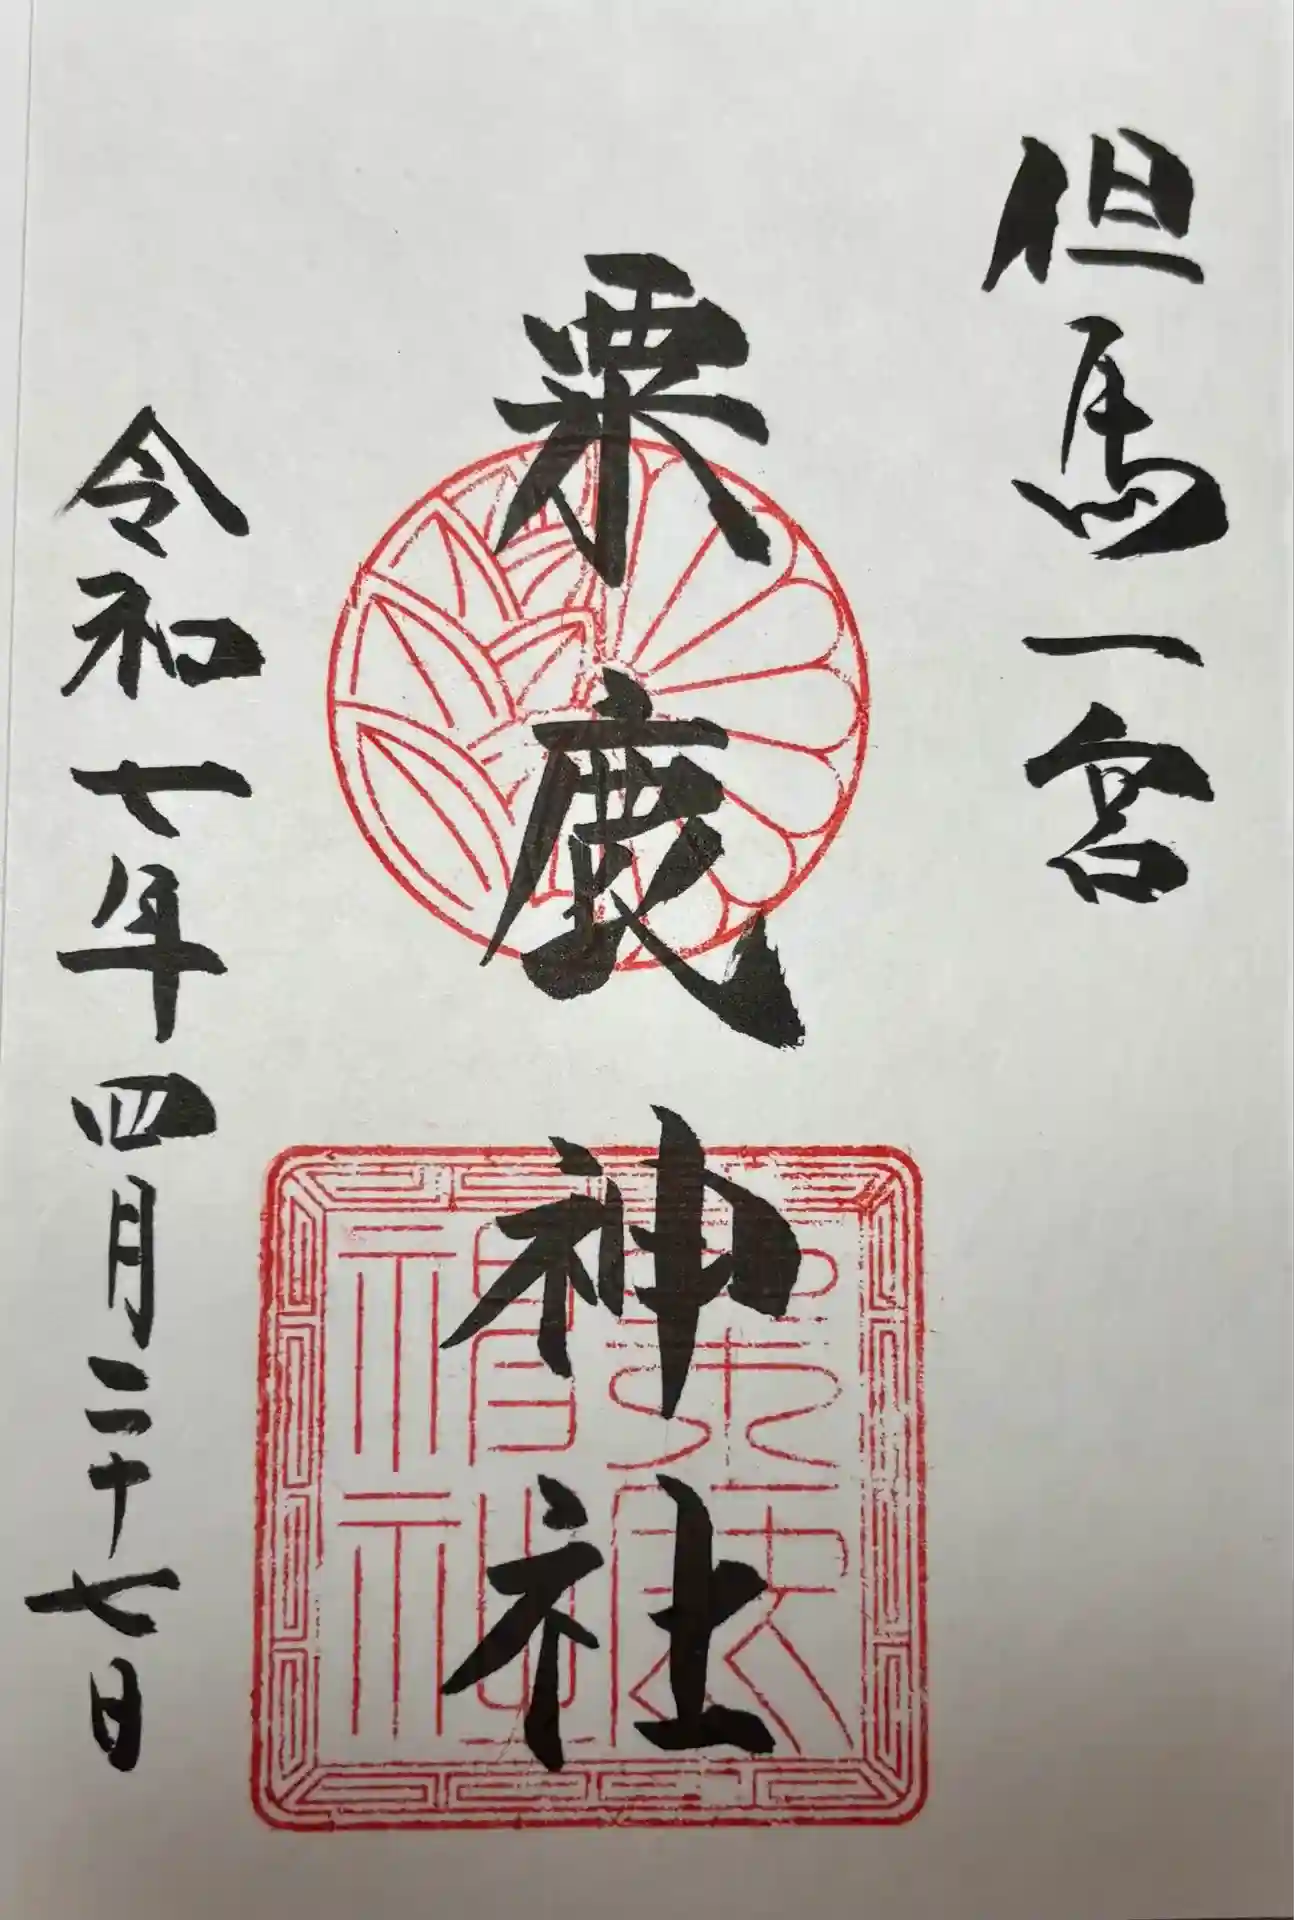 但馬一宮
粟鹿神社
令和七年四月二十七日
粟鹿神社